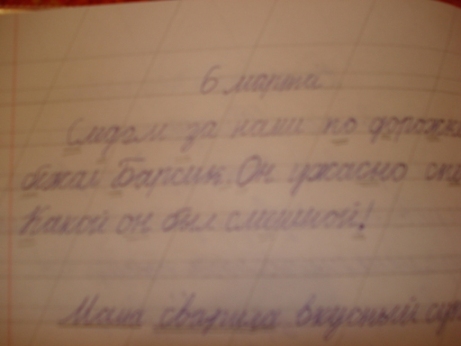 6 марта
Следом за нами по дорожке
бежал Барсик. Он ужасно
Какой он был смешной!
Мама сварила вкусный суп